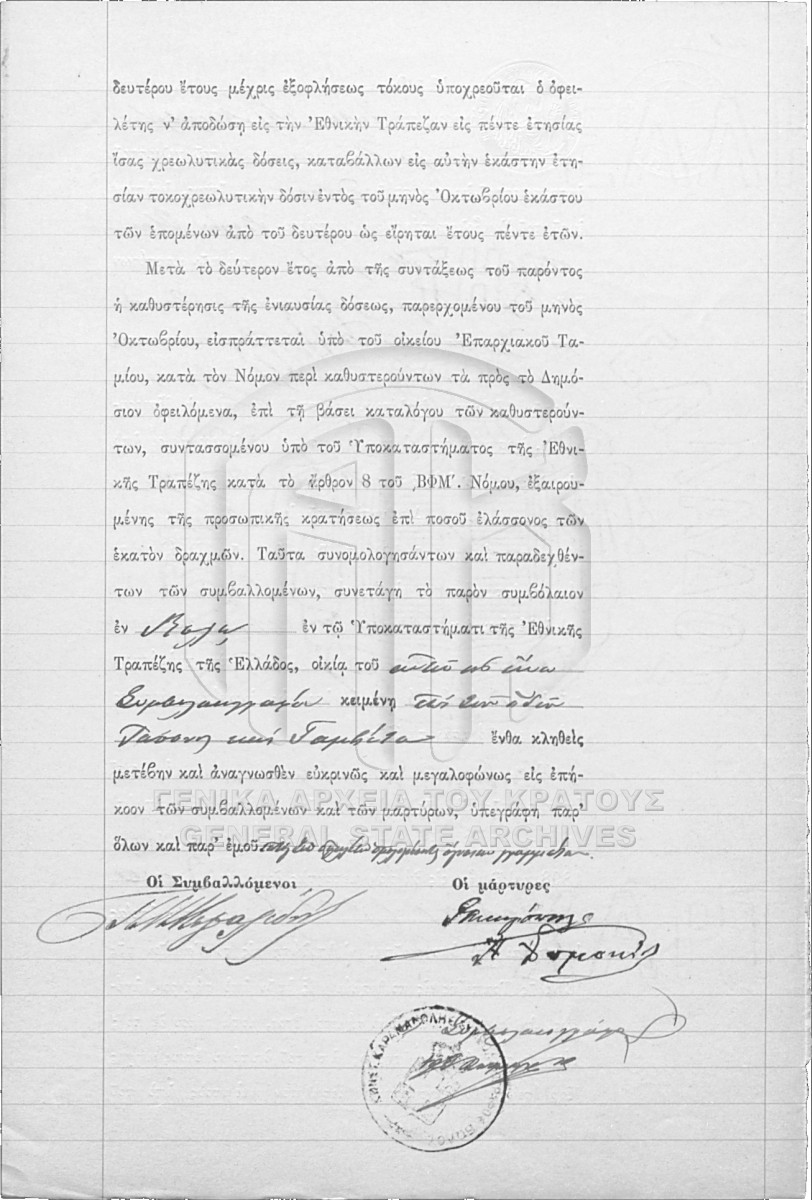 δευτέρου ἔτους μέχρις ἐξοφλήσεως τόκους ὑποχρεοῦται ὁ ὀφει-
λέτης ν' ἀποδώσῃ εἰς τὴν Ἐθνικὴν Τράπεζαν εἰς πέντε ἐτησίας
ἴσας χρεωλυτικὰς δόσεις, καταβάλλων εἰς αὐτὴν ἑκάστην ἐτη-
σίαν τοκοχρεωλυτικὴν δόσιν ἐντὸς τοῦ μηνὸς Ὀκτωβρίου ἑκάστου
τῶν ἑπομένων ἀπὸ τοῦ δευτέρου ὡς εἴρηται ἔτους πέντε ἐτῶν.
Μετὰ τὸ δεύτερον ἔτος ἀπὸ τῆς συντάξεως τοῦ παρόντος
ἡ καθυστέρησις τῆς ἐνιαυσίας δόσεως, παρερχομένου τοῦ μηνὸς
Ὀκτωβρίου, εἰσπράττεται ὑπὸ τοῦ οἰκείου Ἐπαρχιακοῦ Τα-
μίου, κατὰ τὸν Νόμον περὶ καθυστερούντων τὰ πρὸς τὸ Δημό-
σιον ὀφειλόμενα, ἐπὶ τῇ βάσει καταλόγου τῶν καθυστερούν-
των, συντασσομένου ὑπὸ τοῦ Ὑποκαταστήματος τῆς Ἐθνι-
κῆς Τραπέζης κατὰ τὸ ἄρθρον 8 τοῦ ͵ΒΦΜʹ. Νόμου, ἐξαιρου-
μένης τῆς προσωπικῆς κρατήσεως ἐπὶ ποσοῦ ἐλάσσονος τῶν
ἑκατὸν δραχμῶν. Ταῦτα συνομολογησάντων καὶ παραδεχθέν-
των τῶν συμβαλλομένων, συνετάγη τὸ παρὸν συμβόλαιον
ἐν Βόλῳ ἐν τῷ Ὑποκαταστήματι τῆς Ἐθνικῆς
Τραπέζης τῆς Ἑλλάδος, οἰκίᾳ τοῦ
κειμένῃ
ἔνθα κληθεὶς
μετέβην καὶ ἀναγνωσθὲν εὐκρινῶς καὶ μεγαλοφώνως εἰς ἐπή-
κοον τῶν συμβαλλομένων καὶ τῶν μαρτύρων, ὑπεγράφη παρ'
ὅλων καὶ παρ' ἐμοῦ
ΓΕΝΙΚΑ ΑΡΧΕΙΑ ΤΟΥ ΚΡΑΤΟΥΣ
GENERAL STATE ARCHIVES
Οἱ Συμβαλλόμενοι Οἱ μάρτυρες